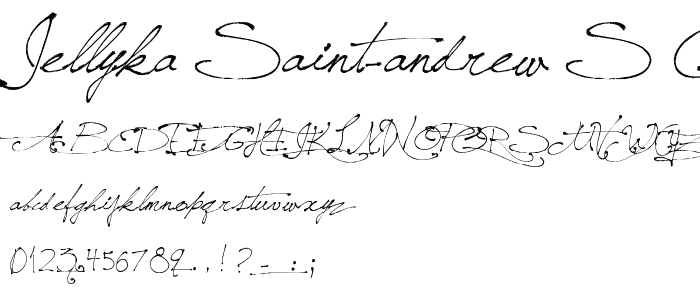 Jellyka Saint-andrew S
ABCDEFGHIJKLMNOPQRSTUVWXYZ
abcdefghijklmnopqrstuvwxyz
0123456789.,!?_-:;